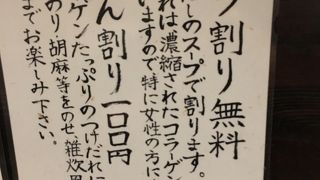 り割り無料
しのスープで割ります。
れは濃縮されたコラーゲン
いますので、特に女性の方に、
ん割り一〇〇円
ゲンたっぷりのつけだれに
のり・胡麻等をのせ、雑炊風
までお楽しみ下さい。